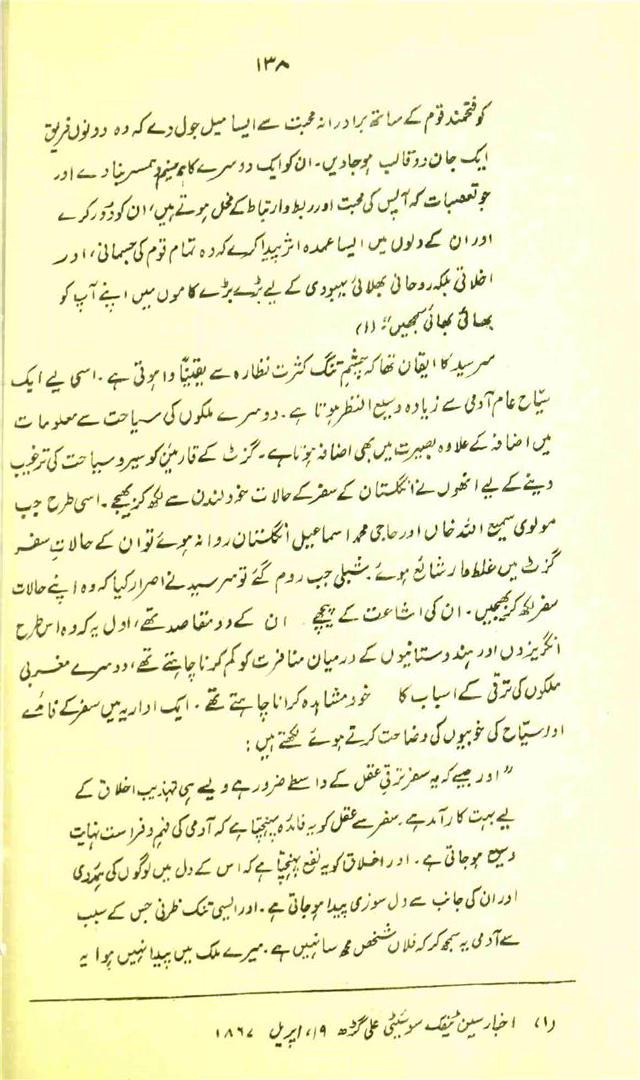 ۱۳۸
کو فتحمند قوم کے ساتھ برادرانہ محبت سے ایسا میل جول دے کہ وہ دونوں فریق
ایک جان دو قالب ہوجادیں۔ ان کو ایک دوسرے کا ہم ہمسر بنا دے اور
جو تعصبات کہ آپس کی محبت اور ربط و ارتباط کے مخل ہوتے ہیں، ان کو دُور کرے
اور ان کے دلوں میں ایسا عمدہ اثر پیدا کرے کہ وہ تمام قوم کی جسمانی، اور
اخلاقی بلکہ روحانی بھلائی بہبودی کے لیے بڑے بڑے کاموں میں اپنے آپ کو
بھائی بھائی سمجھیں" (۱)
سرسید کا ایقان تھا کہ چشمِ تنگ کثرت نظارہ سے یقیناً وا ہوتی ہے۔ اسی لیے ایک
سیّاح عام آدمی سے زیادہ وسیع النظر ہوتا ہے۔ دوسرے ملکوں کی سیاحت سے معلومات
میں اضافہ کے علاوہ بصیرت میں بھی اضافہ ہوتا ہے۔ گزٹ کے قارئین کو سیر و سیاحت کی ترغیب
دینے کے لیے انھوں نے انگلستان کے سفر کے حالات خود لندن سے لکھ کر بھیجے۔ اسی طرح جب
مولوی سمیع اللہ خاں اور حاجی محمد اسماعیل انگلستان روانہ ہوئے تو ان کے حالاتِ سفر
گزٹ میں غلط وار شائع ہوئے۔ شبلی جب روم گئے تو سرسید نے اصرار کیا کہ وہ اپنے حالات
سفر لکھ کر بھیجیں۔ ان کی اشاعت کے پیچھے ان کے دو مقاصد تھے، اول یہ کہ وہ اس طرح
انگریزوں اور ہندستانیوں کے درمیان منافرت کو کم کرنا چاہتے تھے، دوسرے مغربی
ملکوں کی ترقی کے اسباب کا خود مشاہدہ کرانا چاہتے تھے۔ ایک اداریہ میں سفر کے فائدے
اور سیّاح کی خوبیوں کی وضاحت کرتے ہوئے لکھتے ہیں:
"اور جیسے کہ یہ سفر ترقی عقل کے واسطے ضرور ہے ویسے ہی تہذیب اخلاق کے
لیے بہت کارآمد ہے۔ سفر سے عقل کو یہ فائدہ پہنچتا ہے کہ آدمی کی فہم و فراست نہایت
وسیع ہوجاتی ہے۔ اور اخلاق کو یہ نفع پہنچتا ہے کہ اس کے دل میں لوگوں کی ہمدردی
اور ان کی جانب سے دل سوزی پیدا ہوجاتی ہے۔ اور ایسی تنک ظرفی جس کے سبب
سے آدمی یہ سمجھ کر کہ فلاں شخص مجھ سا نہیں ہے۔ میرے ملک میں پیدا نہیں ہوا یہ
(۱) اخبار سین ٹیفک سوسائیٹی علی گڑھ ۱۹، اپریل ۱۸۶۷